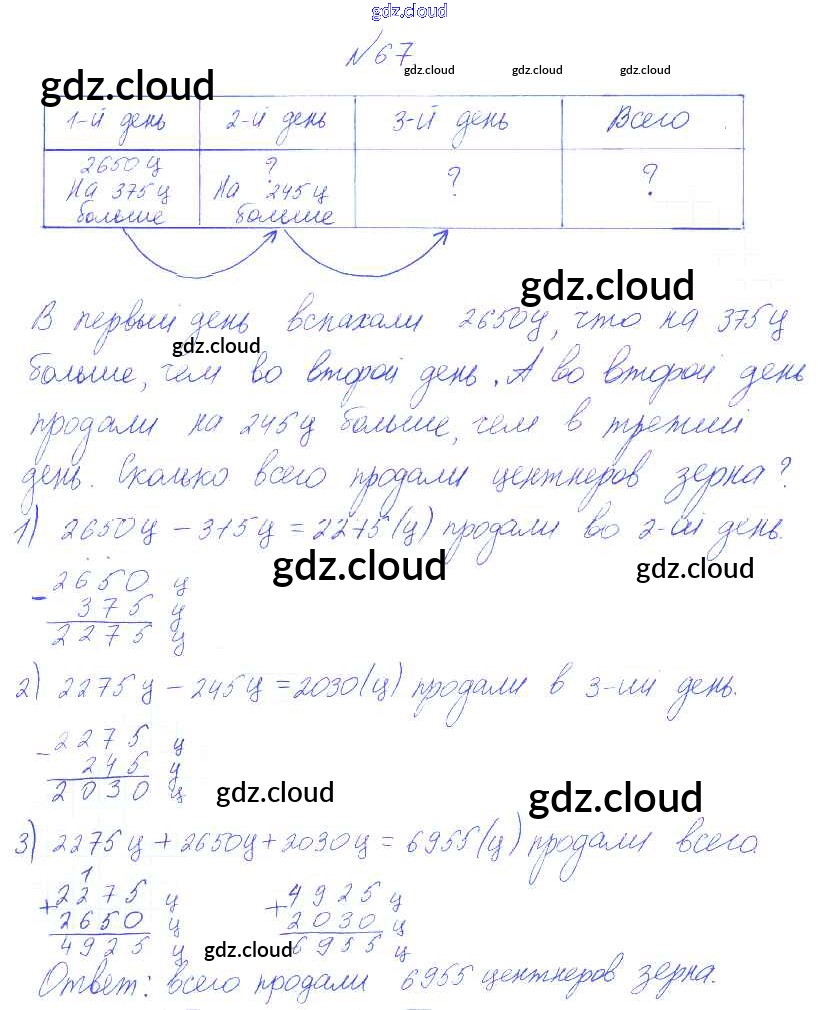 gdz.cloud
№67
gdz.cloud gdz.cloud gdz.cloud gdz.cloud
1-й день 2-й день 3-й день Всего
2650 ц ? ? ?
На 375 ц На 245 ц
больше больше
gdz.cloud
В первый день вспахали 2650 ц, что на 375 ц
gdz.cloud
больше, чем во второй день. А во второй день
продали на 245 ц больше, чем в третий
день. Сколько всего продали центнеров зерна?
1) 2650 ц – 375 ц = 2275 (ц) продали во 2-ой день.
gdz.cloud gdz.cloud
- 2650 ц
375 ц
2275 ц
2) 2275 ц – 245 ц = 2030 (ц) продали в 3-ий день.
- 2275 ц
245 ц
2030 ц
gdz.cloud gdz.cloud
3) 2275 ц + 2650 ц + 2030 ц = 6955 (ц) продали всего.
1
+ 2275 ц + 4925 ц
2650 ц 2030 ц
4925 ц 6955 ц
gdz.cloud gdz.cloud
Ответ: всего продали 6955 центнеров зерна.